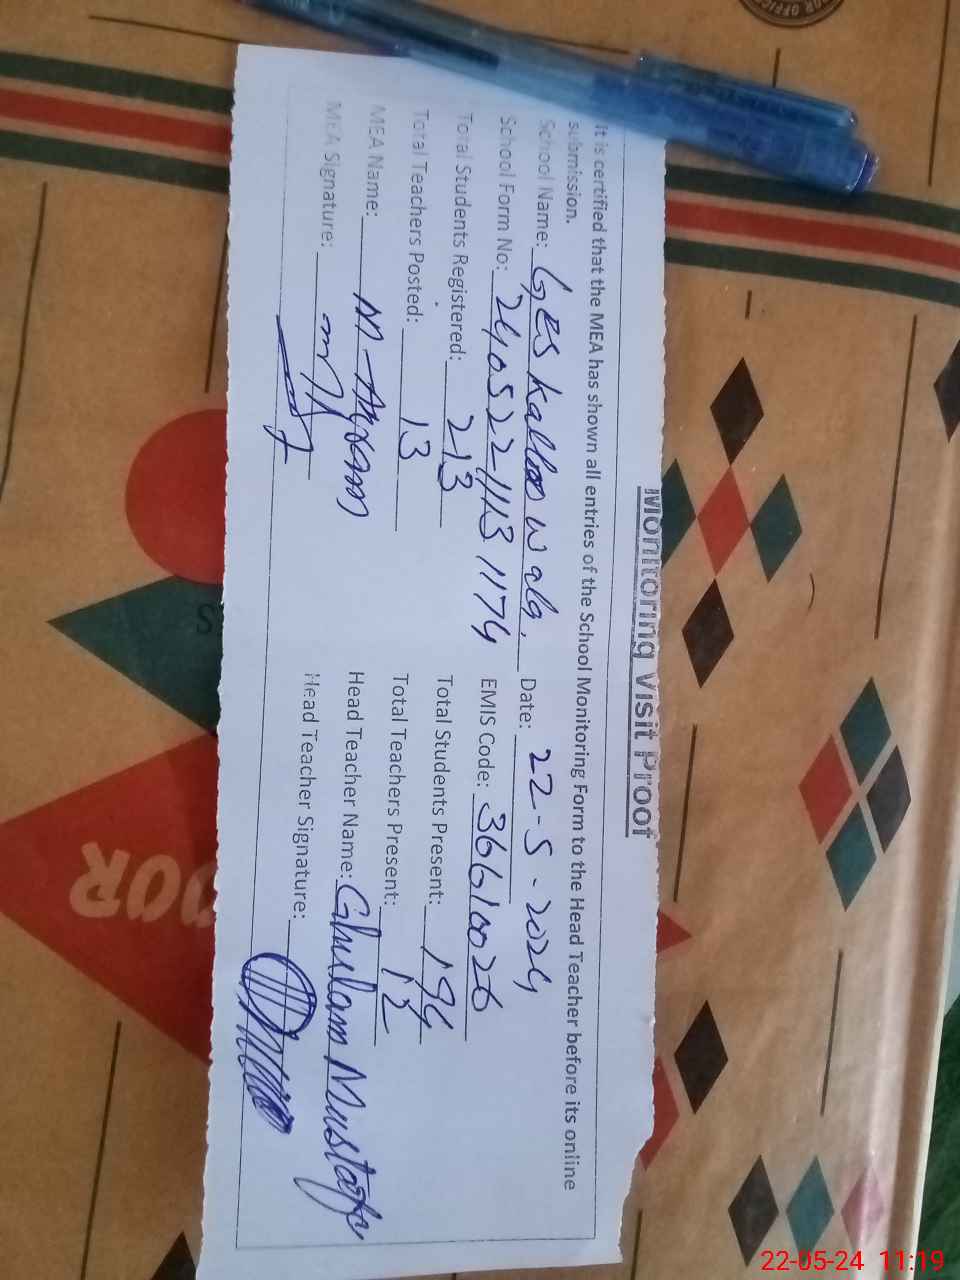 Monitoring Visit Proof
It is certified that the MEA has shown all entries of the School Monitoring Form to the Head Teacher before its online
submission.
School Name: GES kalloo wala. Date: 22-5-2024
School Form No: 240522 1113 1174 EMIS Code: 36610026
Total Students Registered: 213 Total Students Present: 194
Total Teachers Posted: 13 Total Teachers Present: 12
MEA Name: M-Akram Head Teacher Name: Ghulam Mustafa
MEA Signature: Head Teacher Signature:
OOR
22-05-24 11:19